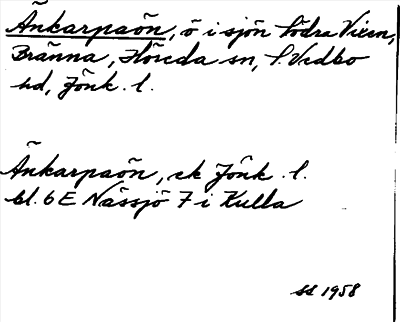 Änkarpaön, ö i sjön Södra Vixen,
Bränna, Höreda sn, S. Vedbo
hd, Jönk. l.
Änkarpaön, ek Jönk. l.
bl. 6 E Nässjö 7 i Kulla
SS 1958